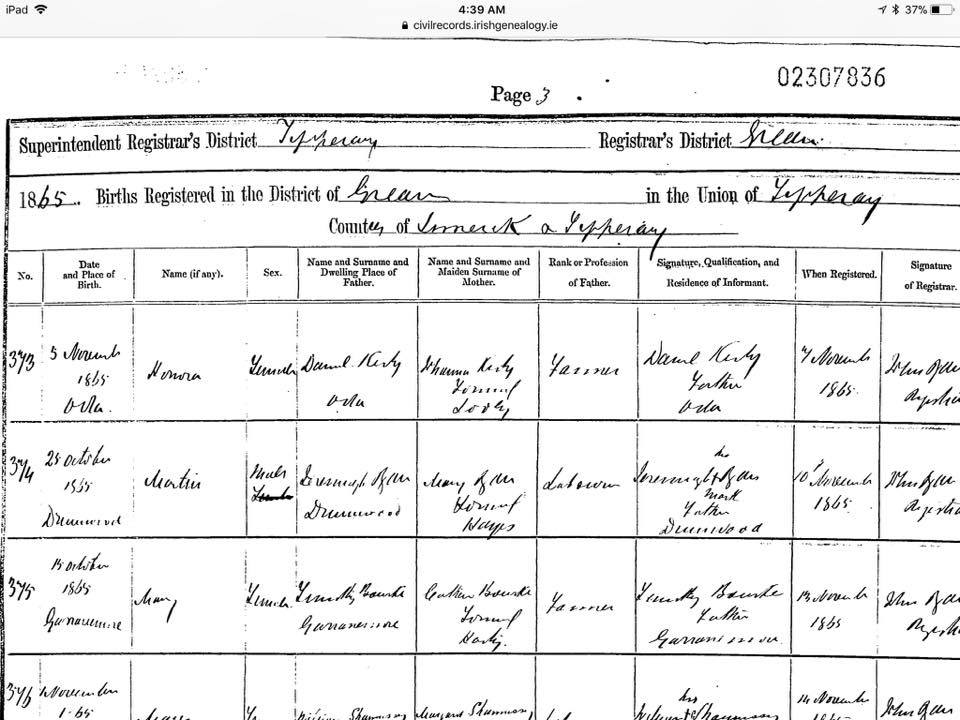 iPad
4:39 AM
37%
civilrecords.irishgenealogy.ie
02307836
Page 3
Superintendent Registrar's District Tipperary Registrar's District Grean
1865. Births Registered in the District of Grean in the Union of Tipperary
Counties of Limerick & Tipperary
No. Date and Place of Birth. Name (if any). Sex. Name and Surname and Dwelling Place of Father. Name and Surname and Maiden Surname of Mother. Rank or Profession of Father. Signature, Qualification, and Residence of Informant. When Registered. Signature of Registrar.
373 November Honora Female Daniel Johanna Farmer Daniel 7 November John Ryan
1865 Formerly Father 1865 Registrar
Oola Oola Oola
374 October Martin Male Jeremiah Ryan Mary Ryan Labourer his Jeremiah Ryan 10 November John Ryan
1865 Female Formerly mark 1865 Registrar
Drumwood Drumwood Hayes Father
Drumwood
375 October Mary Female Timothy Bourke Bourke Farmer Timothy Bourke 13 November John Ryan
1865 Formerly Father 1865 Registrar
Garranemore Garranemore Garranemore
376 November William Shannon Margaret Shannon his 14 November John Ryan
1865 Shannon 1865 Registrar